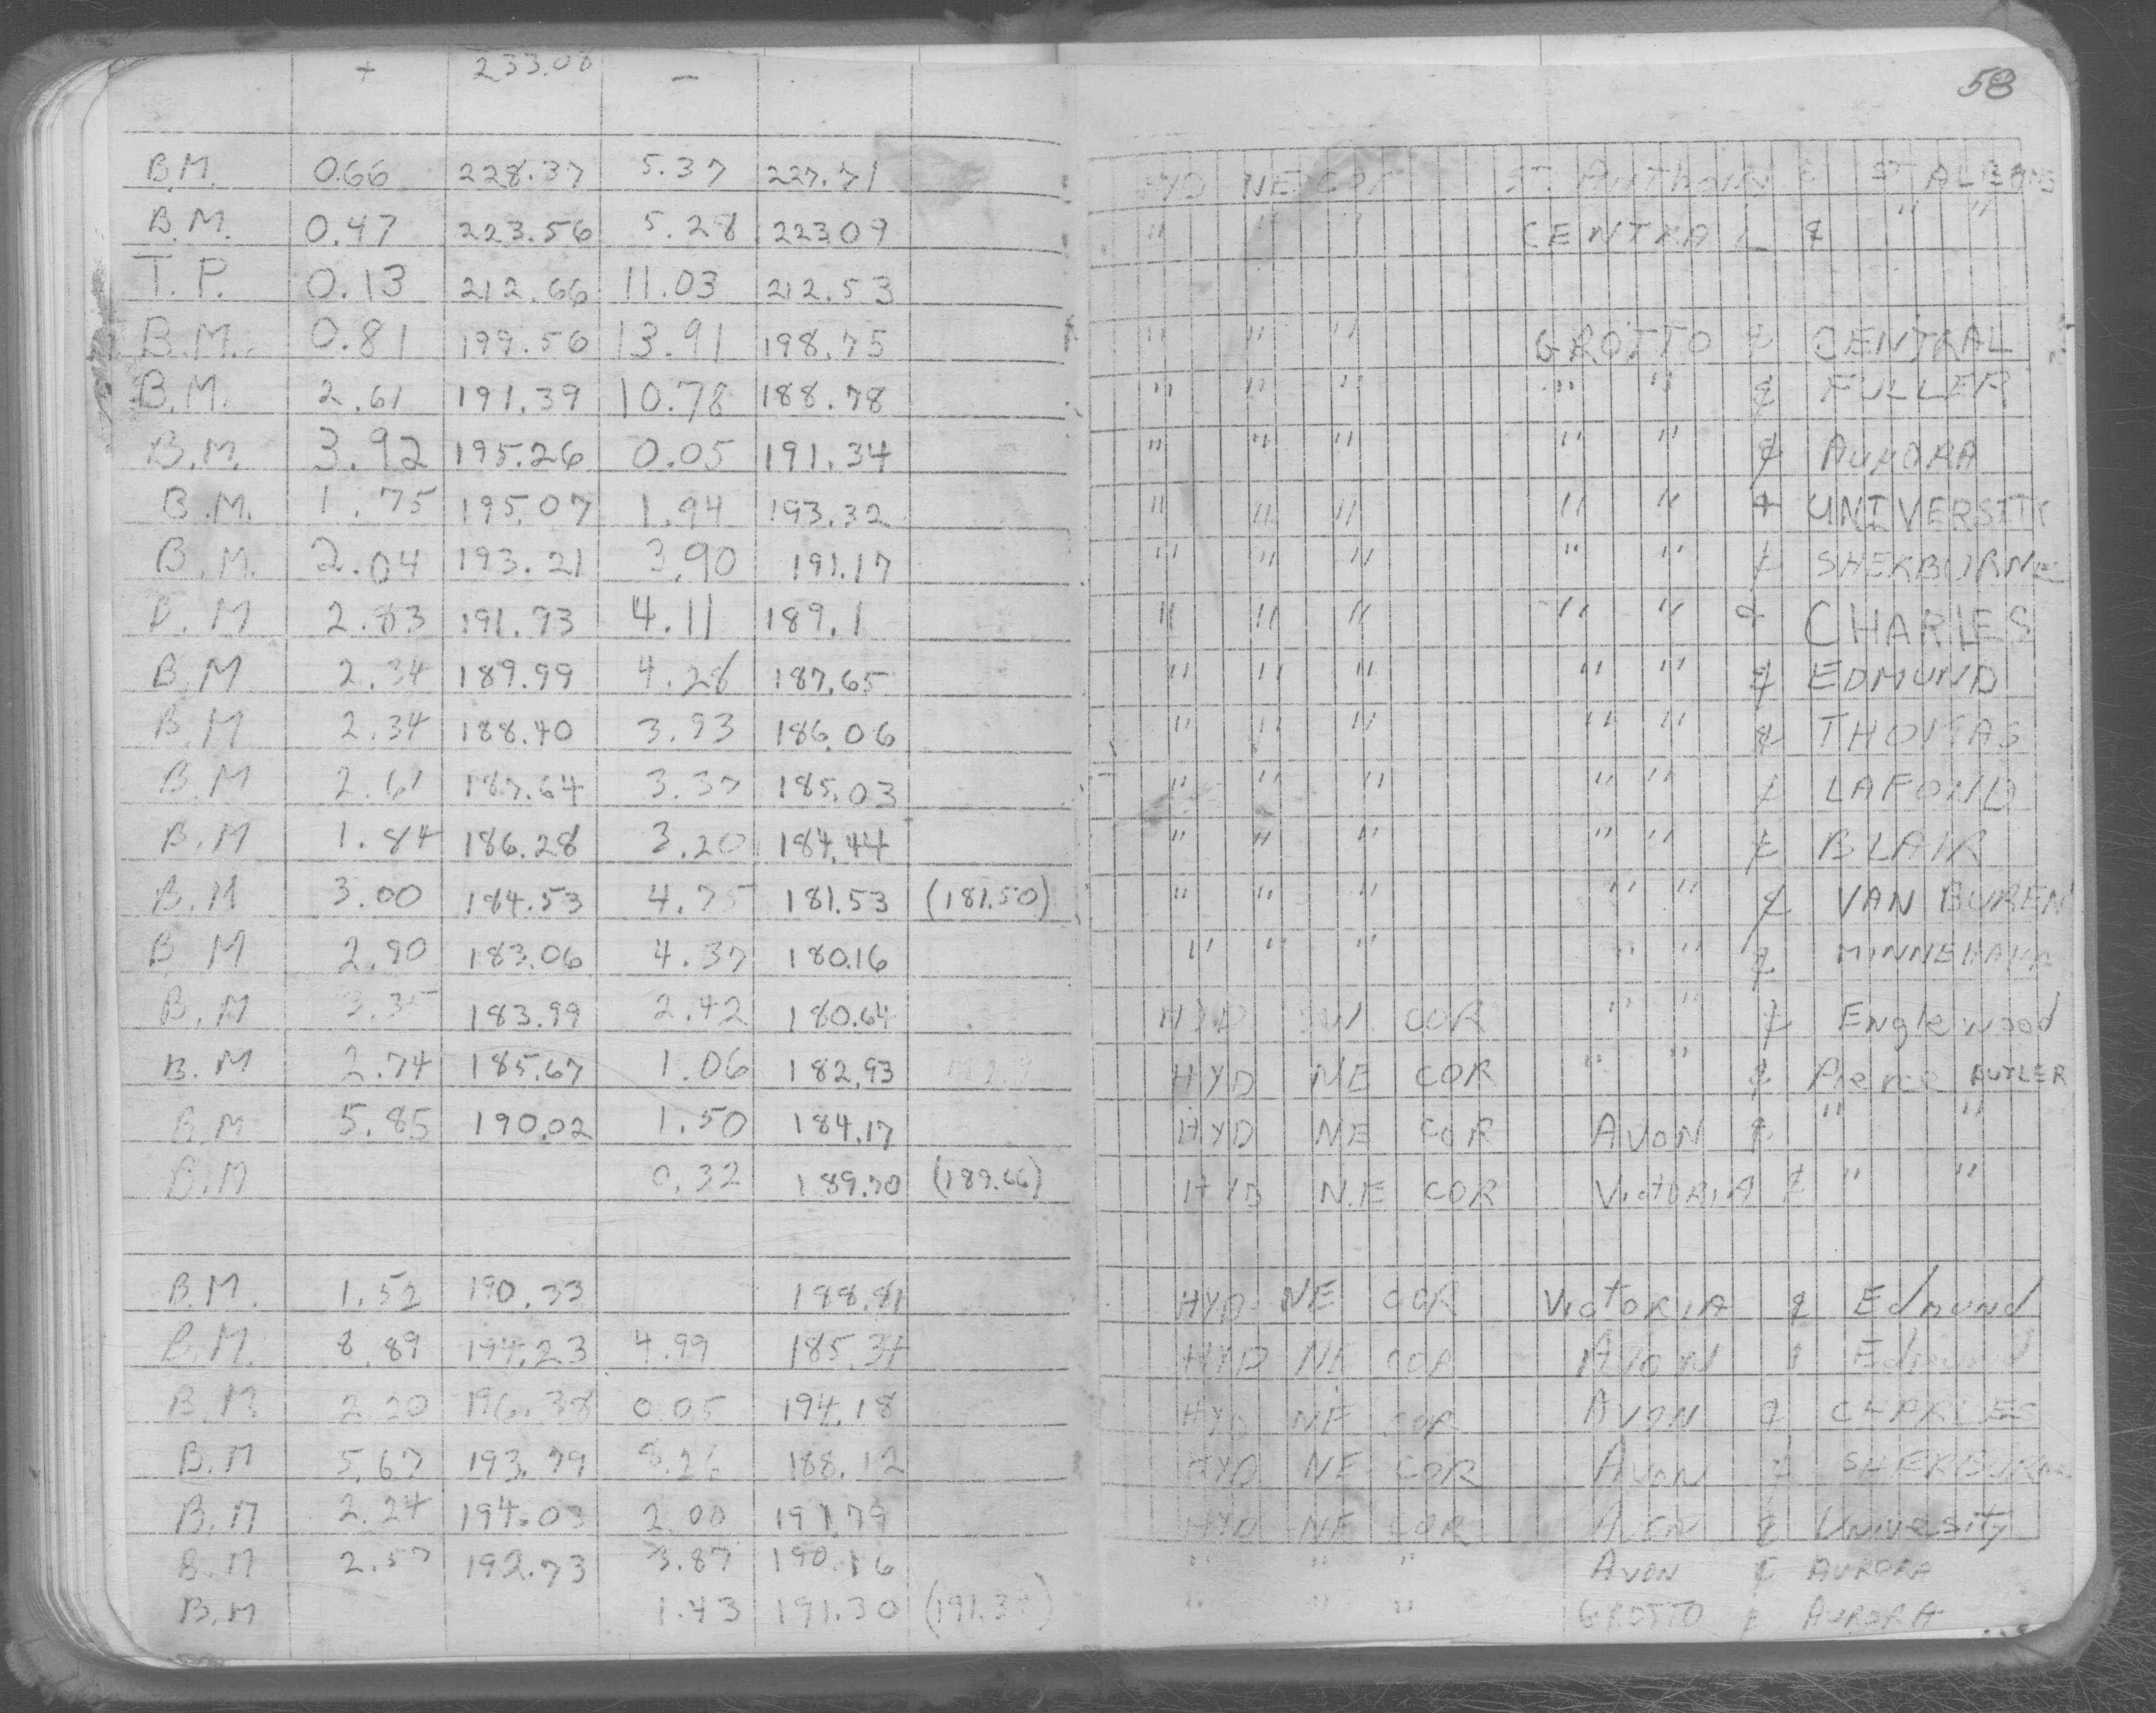 58
+ 233.08 −
B.M. 0.66 228.37 5.37 227.71 HYD NE COR ST. ANTHONY & ST ALBANS
B.M. 0.47 223.56 5.28 223.09 " " " CENTRAL & " "
T.P. 0.13 212.66 11.03 212.53
B.M. 0.81 199.56 13.91 198.75 " " " GROTTO & CENTRAL
B.M. 2.61 191.39 10.78 188.78 " " " " " & FULLER
B.M. 3.92 195.26 0.05 191.34 " " " " " & AURORA
B.M. 1.75 195.07 1.94 193.32 " " " " " & UNIVERSITY
B.M. 2.04 193.21 3.90 191.17 " " " " " & SHERBURNE
B.M 2.83 191.93 4.11 189.1 " " " " " & CHARLES
B.M 2.34 189.99 4.28 187.65 " " " " " & EDMUND
B.M 2.34 188.40 3.93 186.06 " " " " " & THOMAS
B.M 2.61 187.64 3.37 185.03 " " " " " & LAFOND
B.M 1.84 186.28 3.20 184.44 " " " " " & BLAIR
B.M 3.00 184.53 4.75 181.53 (181.50) " " " " " & VAN BUREN
B.M 2.90 183.06 4.37 180.16 " " " " " & MINNEHAHA
B.M 3.35 183.99 2.42 180.64 HYD SW COR " " & Englewood
B.M 2.74 185.67 1.06 182.93 HYD NE COR " " & Pierce BUTLER
B.M 5.85 190.02 1.50 184.17 HYD NE COR AVON & " "
B.M 0.32 189.70 (189.66) HYD N.E COR VICTORIA & " "
B.M. 1.52 190.33 188.81 HYD NE COR VICTORIA & Edmund
B.M. 8.89 194.23 4.99 185.34 HYD NE COR AVON & Edmund
B.M. 2.20 196.38 0.05 194.18 HYD NE COR AVON & CHARLES
B.M 5.67 193.79 8.26 188.12 HYD NE COR AVON & SHERBURNE
B.M 2.24 194.03 2.00 191.79 HYD NE COR AVON & University
B.M 2.57 192.73 3.87 190.16 " " " AVON & AURORA
B.M 1.43 191.30 (191.34) " " " GROTTO & AURORA